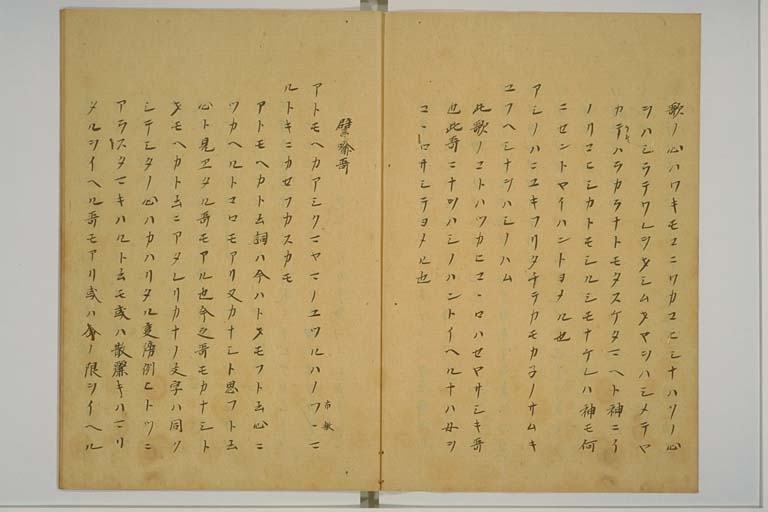 歌ノ心ハワキモコニワカコヒシナハソノ心
ヲハシラテワレヲキシムタマシハシメテヤ
カテハラカラナトモタスケタマヘト神ニイ
ノリコヒシカトモシルシモナケレハ神モ何
ニセントマイハントヨメル也
アシノハニユキフリタチテカモカ子ノサムキ
ユフヘシナヲハシノハム
此歌ノコトハツカヒコヽロハセマサシキ哥
也此哥ニナヲハシノハントイヘルナハ母ヲ
コヽロサシテヨメル也
譬喩哥
アトモヘカアシクマヤマノユツルハノフヽマ
ルトキニカセフカスカモ
アトモヘカト云詞ハ今ハトオモフト云心ニ
ツカヘルトコロモアリ又カナシト思フト云
心ト見ヱタル哥モアル也今之哥モカナシト
オモヘカト云ニアタレリカナノ文字ハ同ヲ
シテシタノ心ハカハリタル変
例ヒトツニ
アラスタマキハルト云モ或ハ
キハマリ
タルヲイヘル哥モアリ或ハ
ノ限ヲイヘル